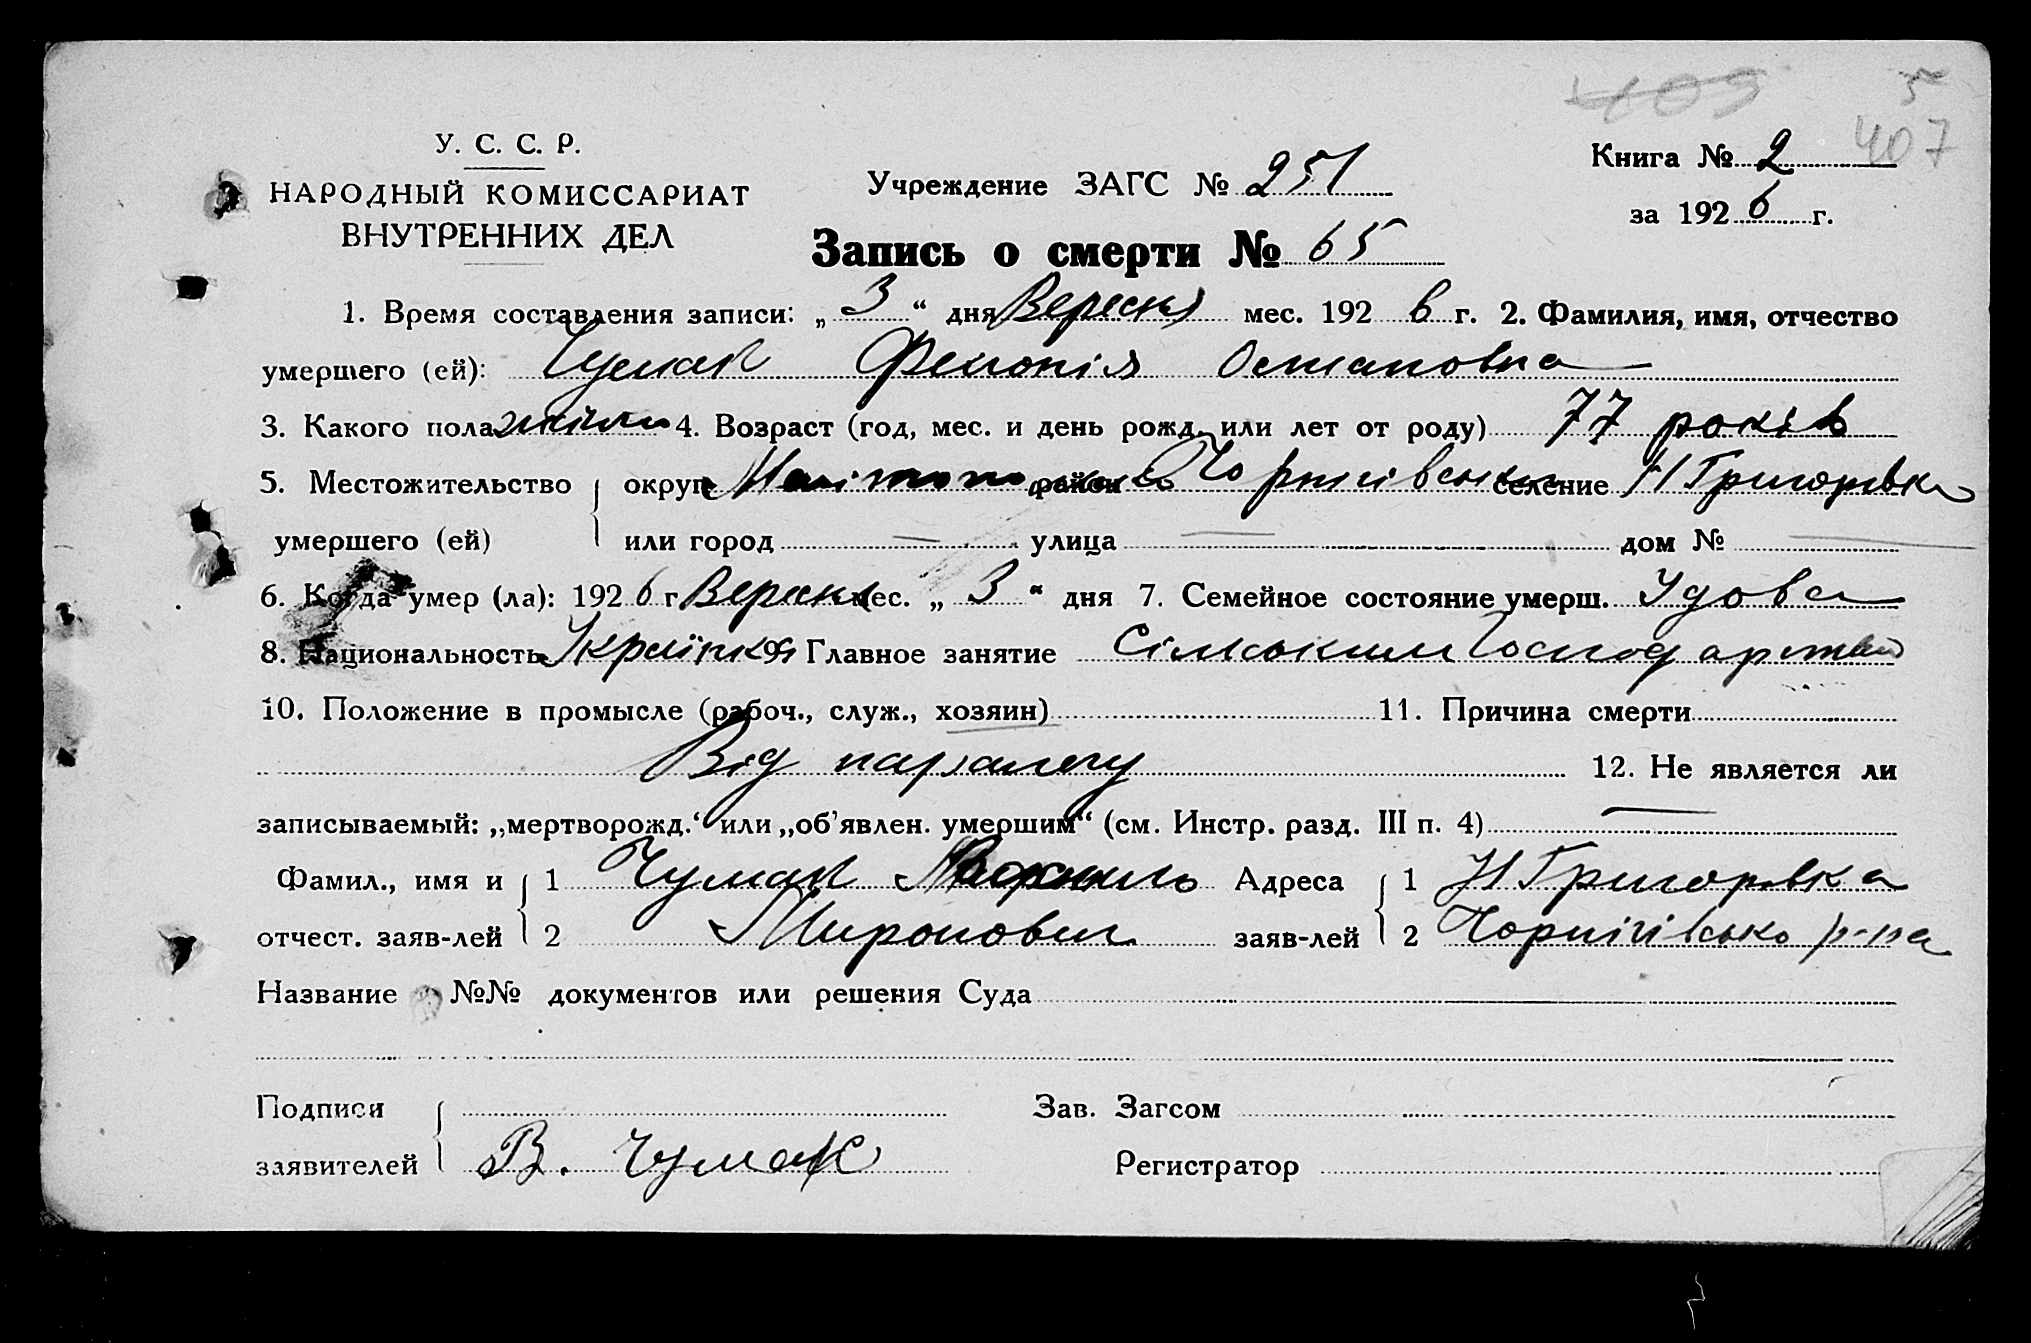 409 5
407
У. С. С. Р.
НАРОДНЫЙ КОМИССАРИАТ
ВНУТРЕННИХ ДЕЛ
Учреждение ЗАГС № 251
Книга № 2
за 1926 г.
Запись о смерти № 65
1. Время составления записи: „3“ дня Вересня мес. 1926 г. 2. Фамилия, имя, отчество
умершего (ей): Чумак Остаповна
3. Какого пола жіноч 4. Возраст (год, мес. и день рожд. или лет от роду) 77 років
5. Местожительство { округ район Чорнігівськ селение Н Григорівка
умершего (ей) или город — улица — дом № —
6. Когда умер (ла): 1926 г Вересня мес. „3“ дня 7. Семейное состояние умерш. Удова
8. Национальность Українка 9. Главное занятие Сільським Господарством
10. Положение в промысле (рабоч., служ., хозяин) 11. Причина смерти
Від паралічу 12. Не является ли
записываемый: „мертворожд.“ или „об'явлен. умершим“ (см. Инстр. разд. III п. 4) —
Фамил., имя и { 1 Чумак Адреса { 1 Н Григорівка
отчест. заяв-лей 2 Миронович заяв-лей 2 Чорнігівсько р-на
Название №№ документов или решения Суда
Подписи { Зав. Загсом
заявителей В. Чумак Регистратор